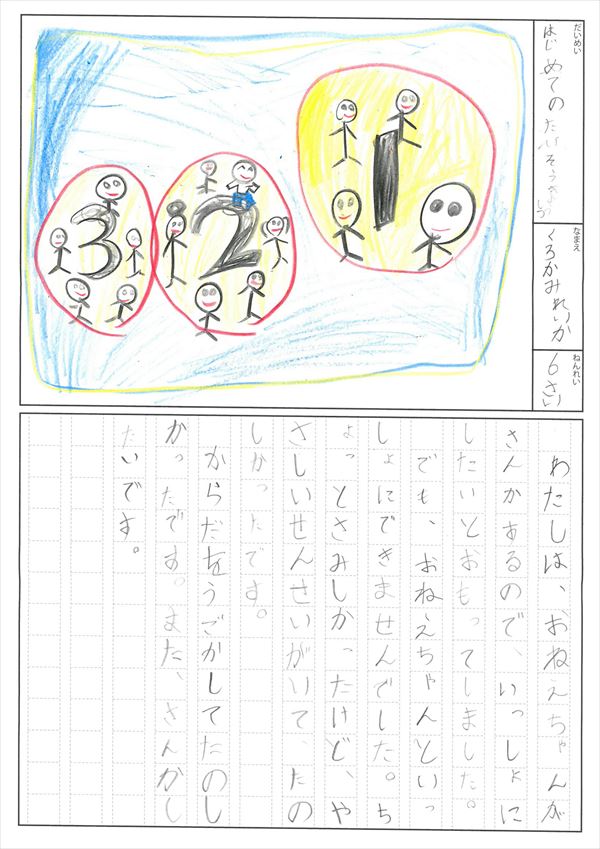 だいめい
はじめての たいそうきょうしつ
なまえ
くろかみれいか
ねんれい
6さい
1
2
3
わたしは、おねえちゃんが
さんかするので、いっしょに
したいとおもってしました。
でも、おねえちゃんといっ
しょにできませんでした。ち
ょっとさみしかったけど、や
さしいせんせいがいて、たの
しかったです。
からだをうごかしてたのし
かったです。また、さんかし
たいです。